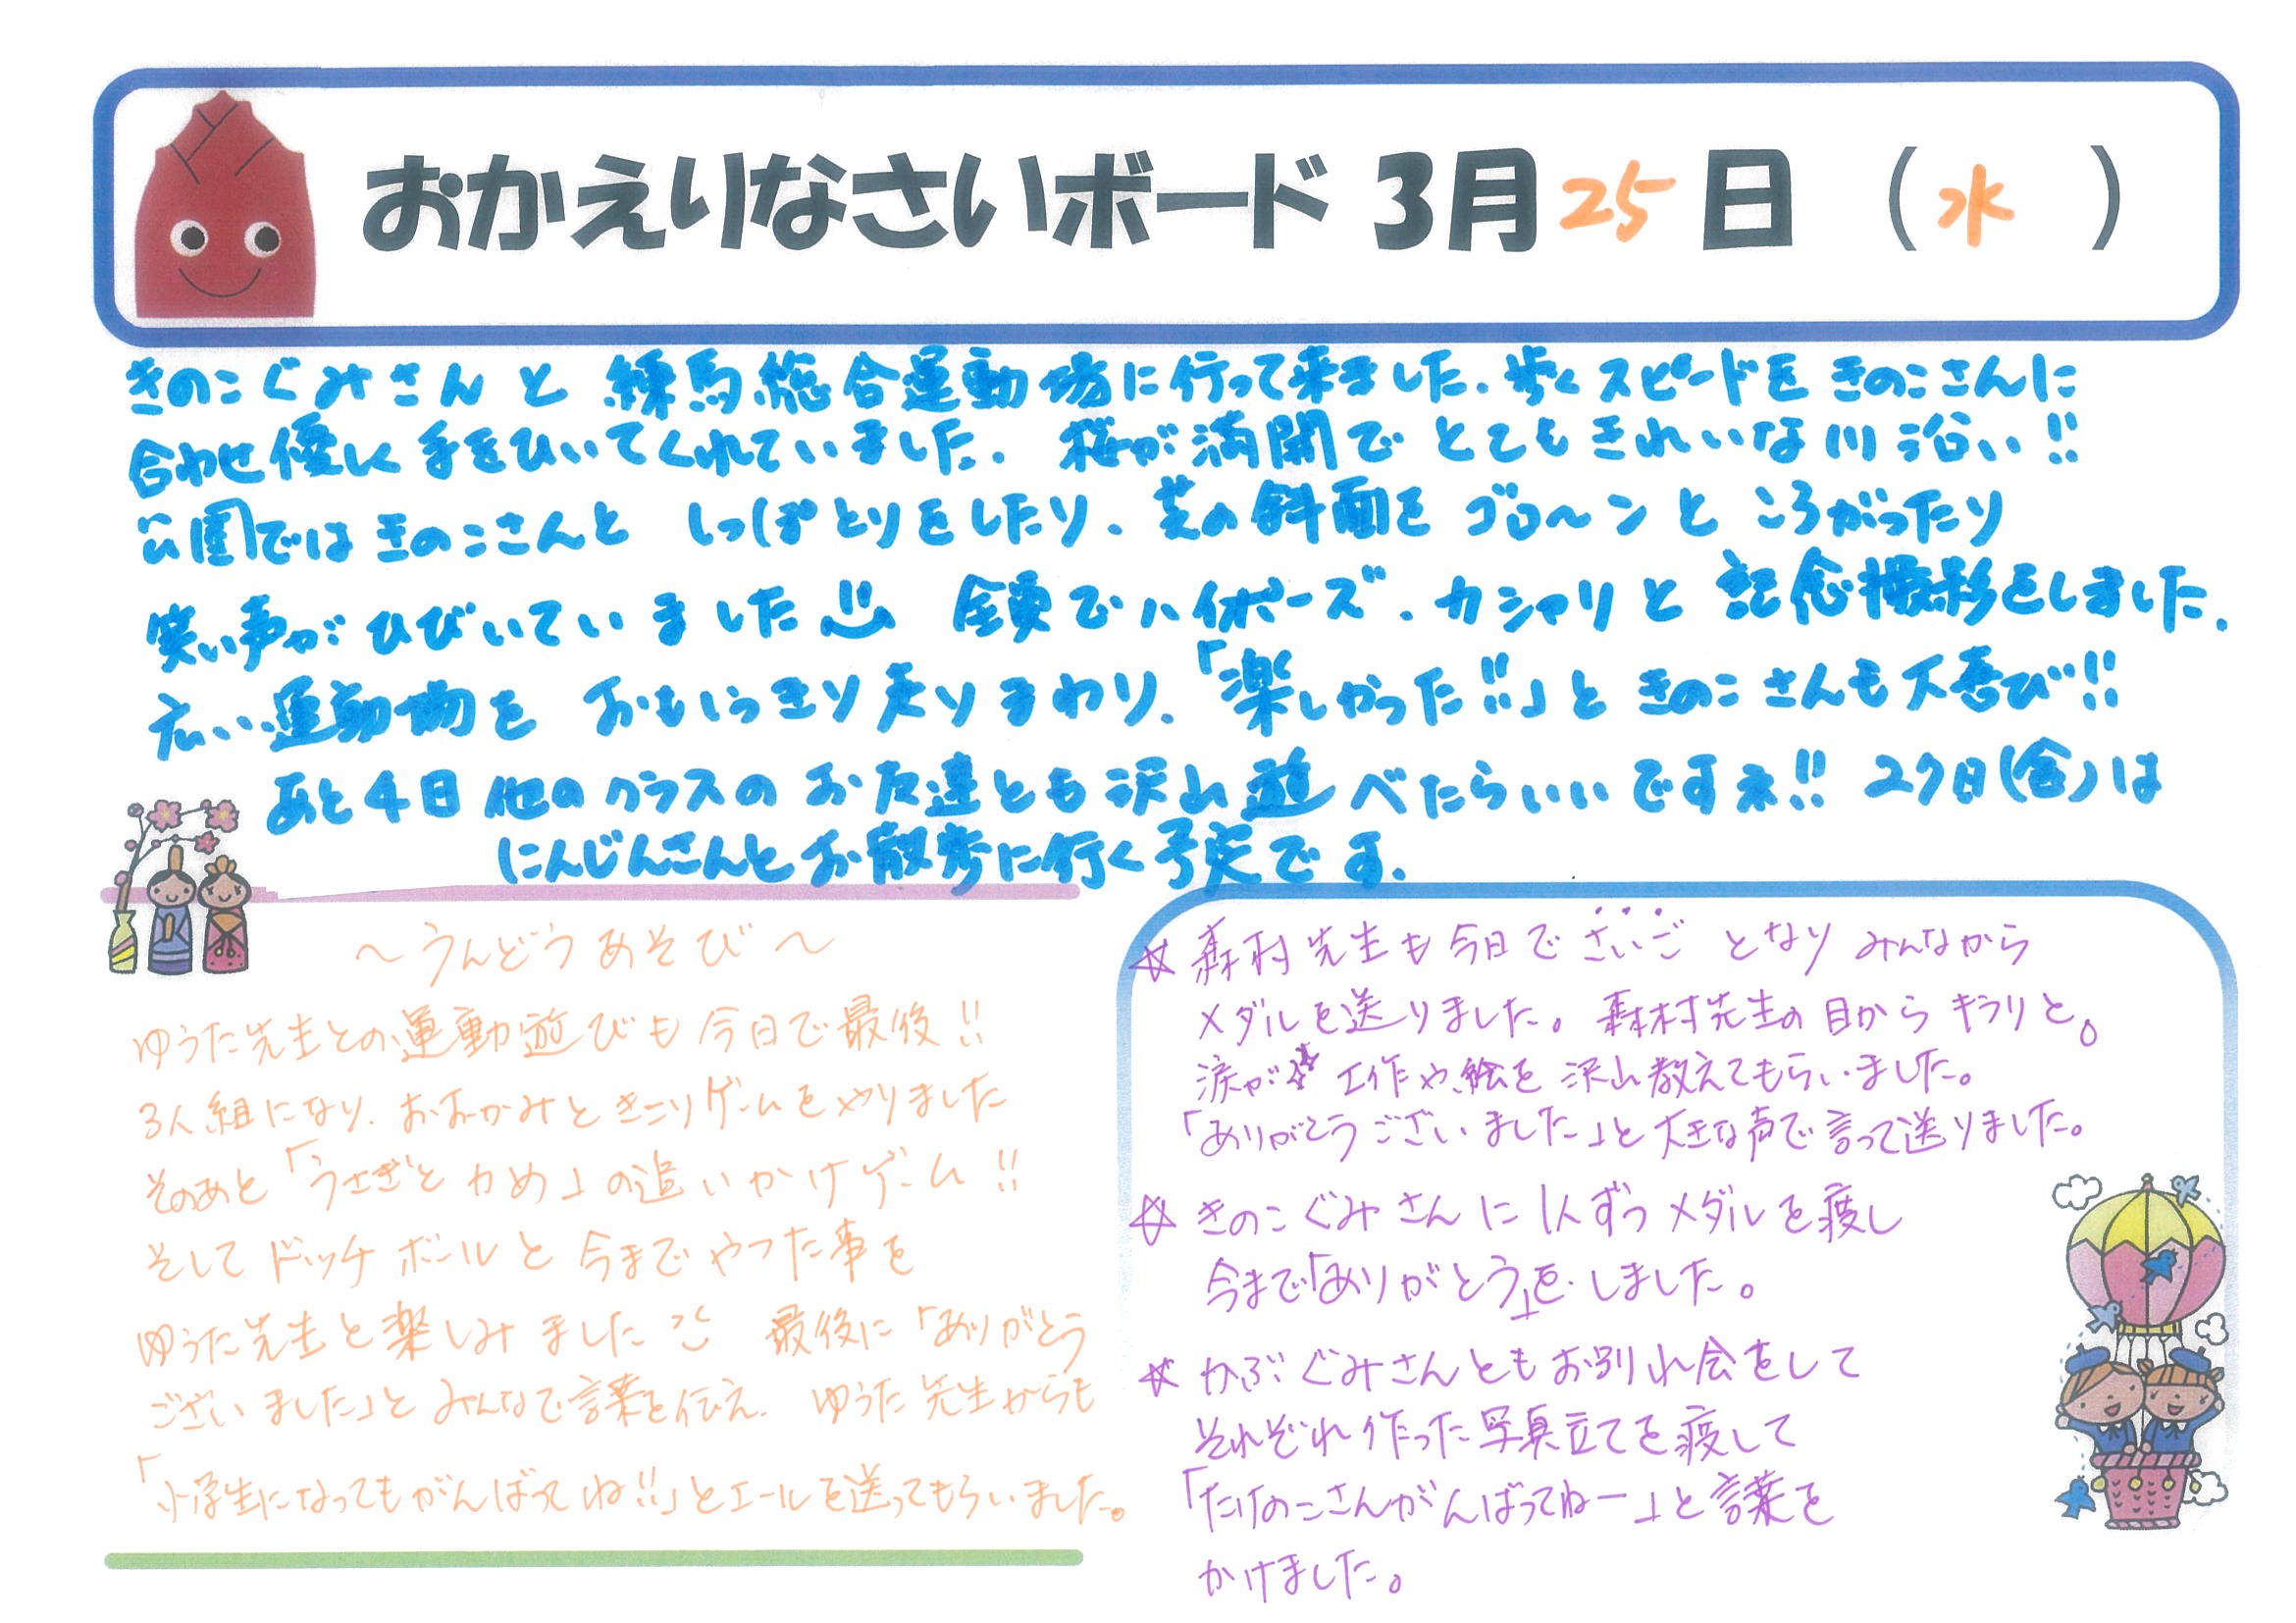 おかえりなさいボード 3月25日（水）
きのこぐみさんと練馬総合運動場に行って来ました.歩くスピードをきのこさんに
合わせ優しく手をひいてくれていました. 桜が満開でとてもきれいな川沿い!!
公園ではきのこさんと しっぽとりをしたり、芝の斜面をゴロ〜ンところがったり
笑い声がひびいていました 全員でハイポーズ、カシャリと記念撮影をしました.
広い運動場をおもいっきり走りまわり、「楽しかった!!」ときのこさんも大喜び!!
あと4日他のクラスのお友達とも沢山遊べたらいいですネ!! 27日(金)は
にんじんさんとお散歩に行く予定です.
〜うんどうあそび〜
ゆうた先生との運動遊びも今日で最後!!
3人組になり、おおかみときこりゲームをやりました
そのあと「うさぎとかめ」の追いかけゲーム!!
そしてドッチボールと今までやった事を
ゆうた先生と楽しみました 最後に「ありがとう
ございました」とみんなで言葉を伝え、ゆうた先生からも
「小学生になってもがんばってね!!」とエールを送ってもらいました。
☆森村先生も今日でさいごとなりみんなから
メダルを送りました。森村先生の目からキラリと。
涙が☆ 工作や絵を沢山教えてもらいました。
「ありがとうございました」と大きな声で言って送りました。
☆きのこぐみさんに1人ずつメダルを渡し
今まで「ありがとう」をしました。
☆かぶぐみさんともお別れ会をして
それぞれ作った写真立てを渡して
「たけのこさんがんばってねー」と言葉を
かけました。